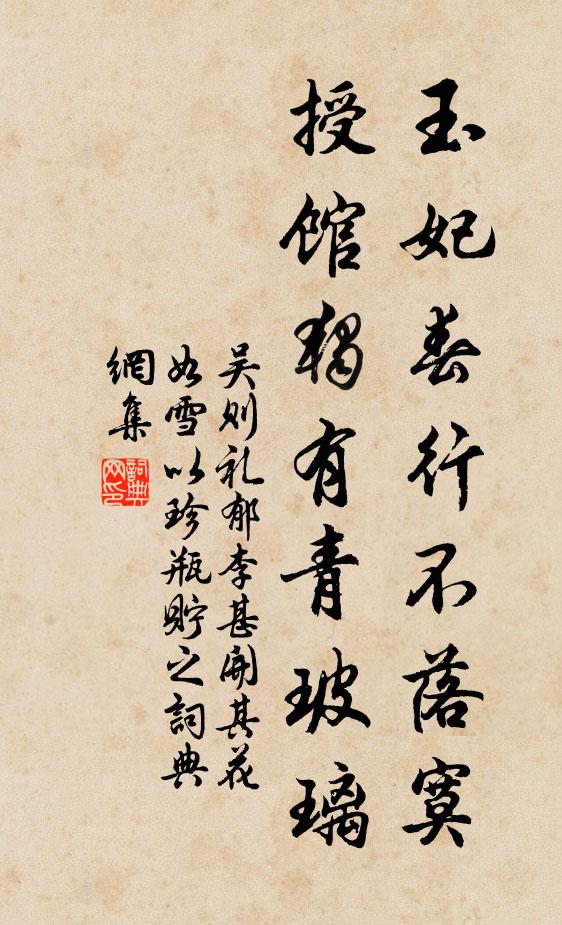 玉妃春行不落寞
授馆独有青玻璃
吴则礼郁李甚开其花
如雪以珍瓶贮之詞典
網集
詞典
网印